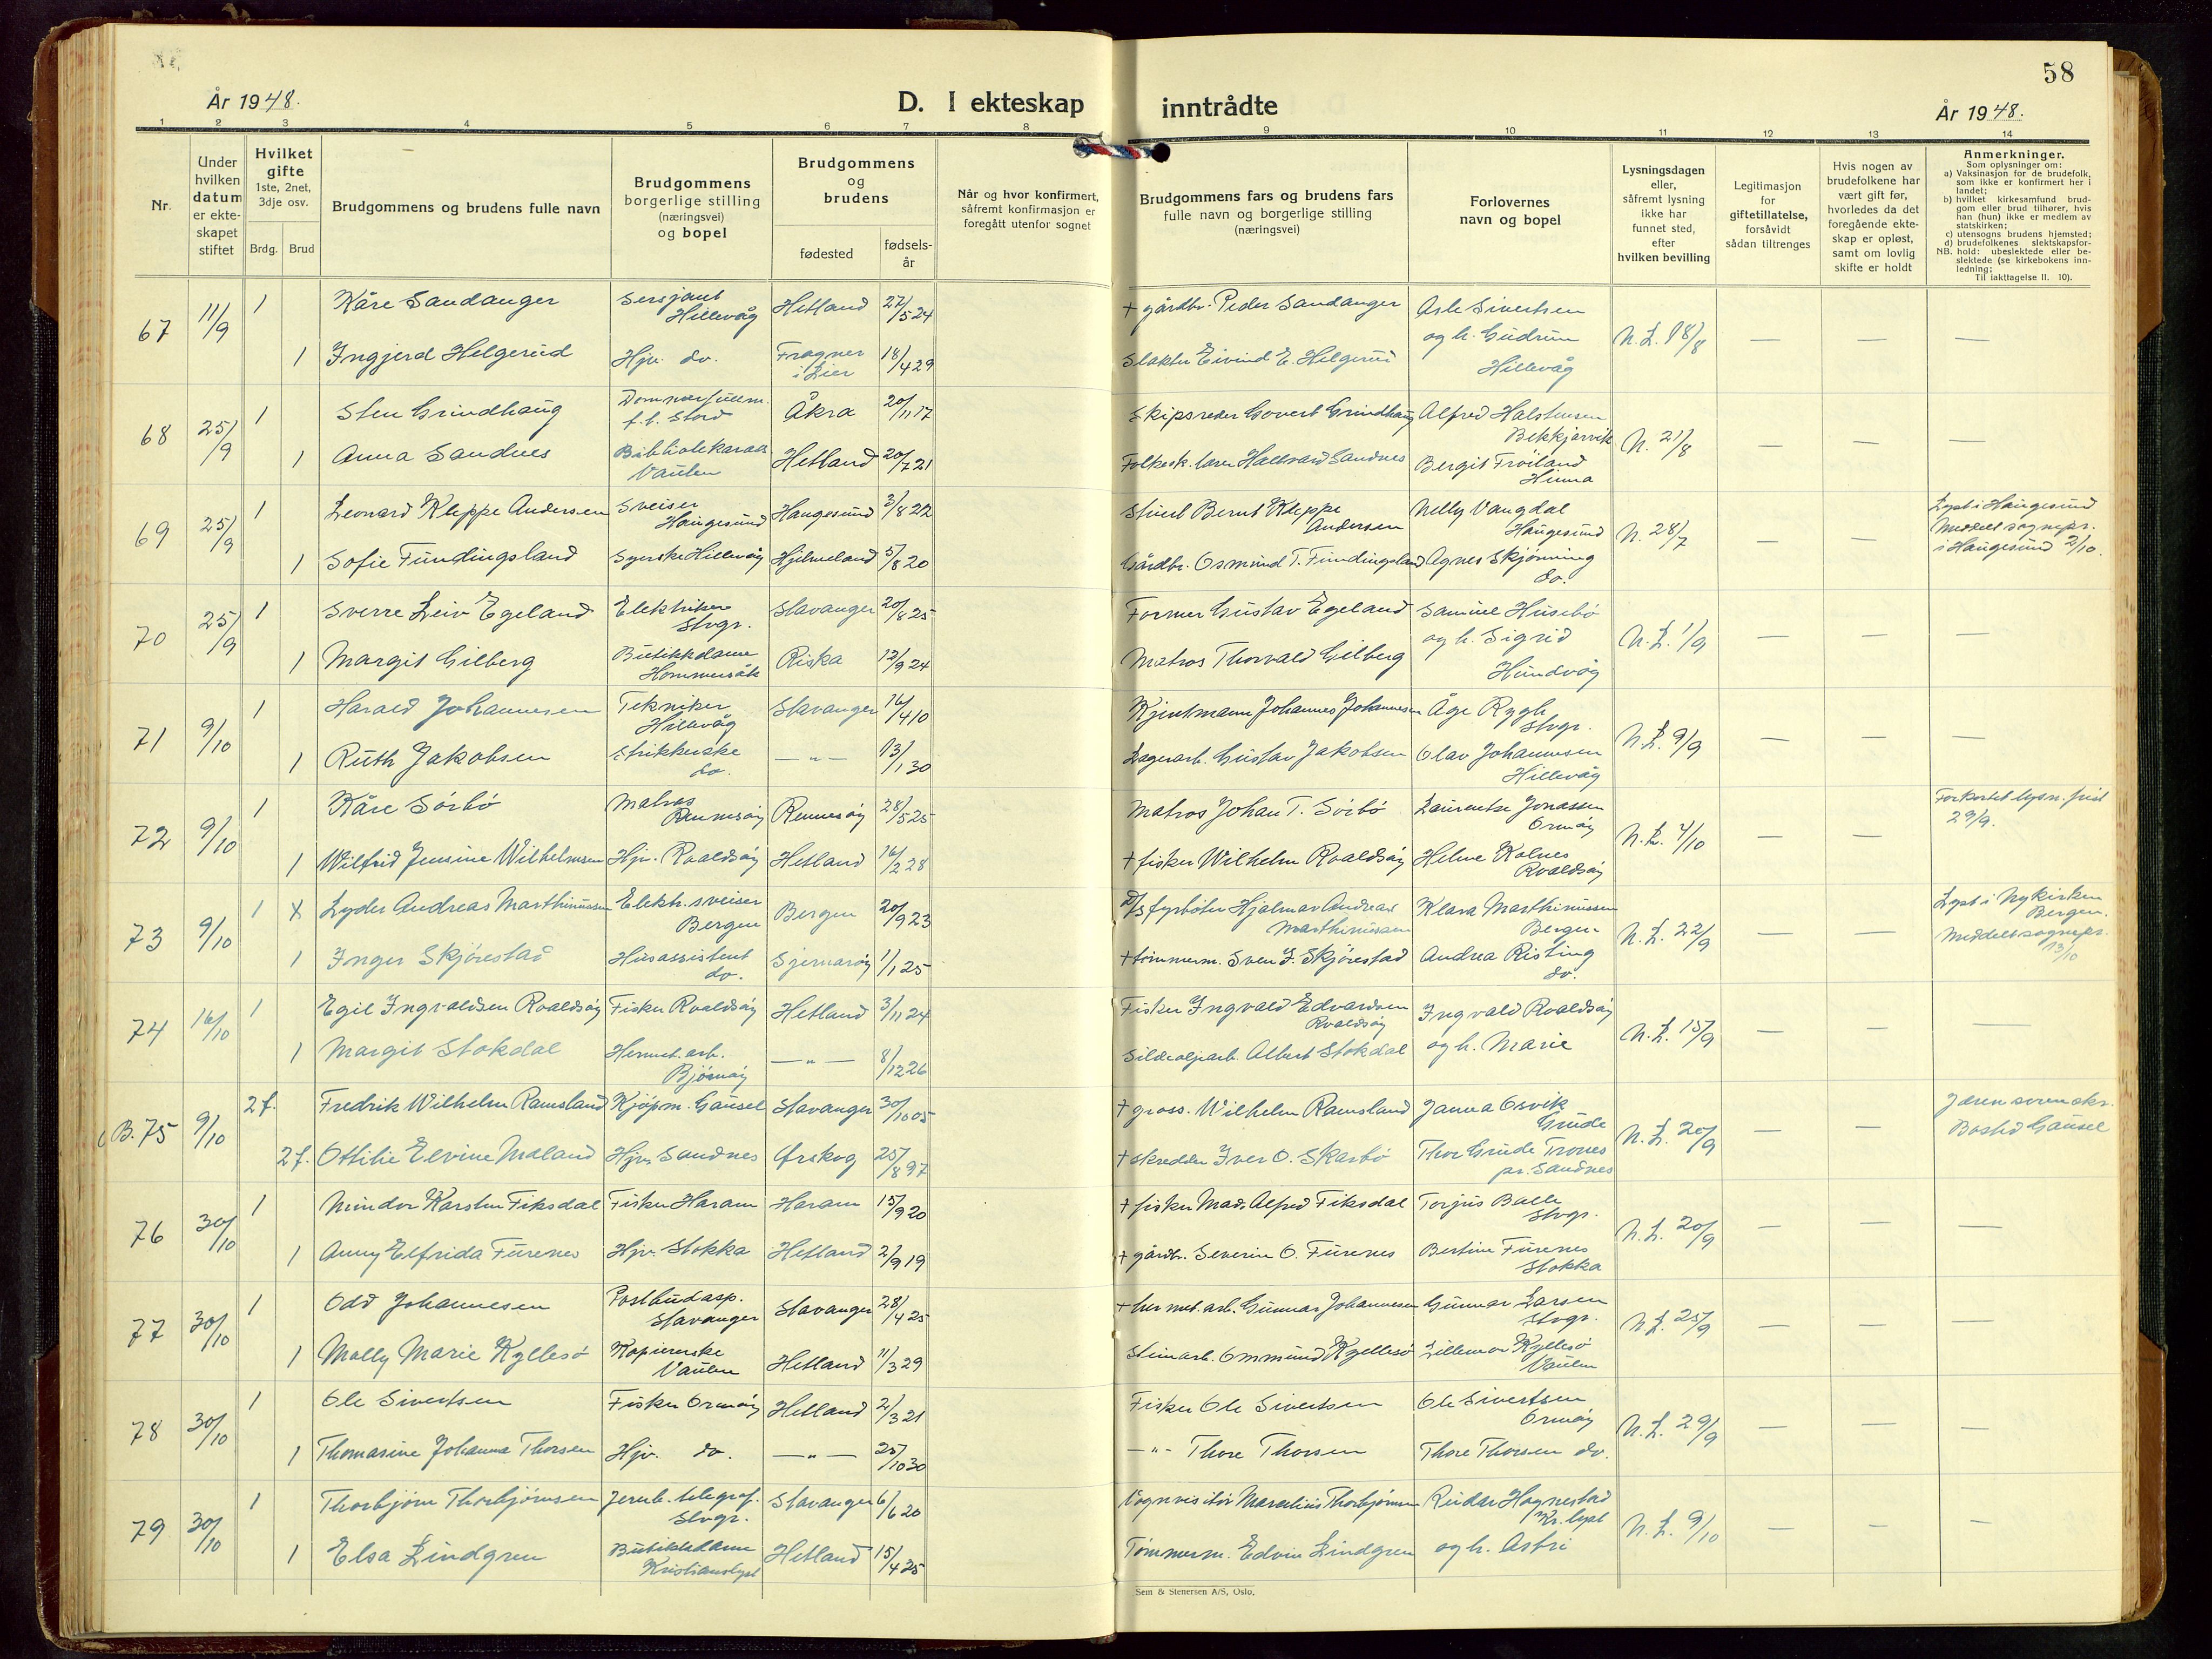 58
År 1948.
D. I ekteskap inntrådte
År 1948.
1 2 3 4 5 6 7 8 9 10 11 12 13 14
Nr.
Under hvilken datum er ekteskapet stiftet
Hvilket gifte 1ste, 2net, 3dje osv.
Brdg. Brud
Brudgommens og brudens fulle navn
Brudgommens borgerlige stilling (næringsvei) og bopel
Brudgommens og brudens
fødested
fødselsår
Når og hvor konfirmert, såfremt konfirmasjon er foregått utenfor sognet
Brudgommens fars og brudens fars fulle navn og borgerlige stilling (næringsvei)
Forlovernes navn og bopel
Lysningsdagen eller, såfremt lysning ikke har funnet sted, efter hvilken bevilling
Legitimasjon for giftetillatelse, forsåvidt sådan tiltrenges
Hvis nogen av brudefolkene har vært gift før, hvorledes da det foregående ekteskap er opløst, samt om lovlig skifte er holdt
Anmerkninger.
Som oplysninger om:
a) Vaksinasjon for de brudefolk, som ikke er konfirmert her i landet;
b) hvilket kirkesamfund brudgom eller brud tilhører, hvis han (hun) ikke er medlem av statskirken;
c) utensogns brudens hjemsted;
d) brudefolkenes slektskapsforhold: ubeslektede eller beslektede (se kirkebokens innledning;
NB.
Til iakttagelse II. 10).
67 11/9 1 Kåre Sandanger Sersjant Hillevåg Hetland 27/5 24 + gårdbr. Peder Sandanger Asle Sivertsen og h. Gudrun Hillevåg N.L. 18/8 — — —
1 Ingjerd Helgerud Hjv. do. Fragner i Lier 18/4 29 Slakter Eivind E. Helgerud
68 25/9 1 Sten Grindhaug Dommerfullm. f.t. Stord Åkra 20/11 17 Skipsreder Govert Grindhaug Alfred Halstensen Bekkjarvik N. 21/8 — — —
1 Anna Sandnes Vaulen Hetland 20/7 21 Folkesk. lærer Hallvard Sandnes Bergit Frøiland Hinna
69 25/9 1 Leonard Kleppe Andersen Sveiser Haugesund Haugesund 3/8 22 Stuert Bernt Kleppe Andersen Nelly Vangdal Haugesund N. 28/7 — — Lyst i Haugesund Meddelt sognepr. i Haugesund 2/10.
1 Sofie Fundingsland Syerske Hillevåg Hjelmeland 5/8 20 Gårdbr. Osmund T. Fundingsland Agnes Skjønning do.
70 25/9 1 Sverre Leiv Egeland Elektriker Stvgr. Stavanger 20/8 25 Former Gustav Egeland Samuel Husebø og h. Sigrid Hundvåg N.L. 1/9 — — —
1 Margit Gilberg Butikkdame Hommersåk Riska 12/9 24 Matros Thorvald Gilberg
71 9/10 1 Harald Johannesen Tekniker Hillevåg Stavanger 16/4 10 Kjentmann Johannes Johannesen Åge Rygh Stvgr. N.L. 9/9 — — —
1 Ruth Jakobsen Strikkerske do. —"— 13/1 30 Lagerarb. Gustav Jakobsen Olav Johannesen Hillevåg
72 9/10 1 Kåre Sørbø Matros Rennesøy Rennesøy 28/5 25 Matros Johan T. Sørbø Laurentse Jonassen Ormøy N.L. 4/10 — — Forkortet lysn. frist 29/9.
1 Wilfrid Jensine Wilhelmsen Hjv. Roaldsøy Hetland 16/2 28 + fisker Wilhelm Roaldsøy Helene Kolnes Roaldsøy
73 9/10 1 X Lyder Andreas Marthinussen Elektr. sveiser Bergen Bergen 20/9 23 D/S fyrbøter Hjalmar Andreas Marthinussen Klara Marthinussen Bergen N.L. 22/9 — — Lyst i Nykirken Bergen. Meddelt sognepr. 13/10
1 Inger Skjørestad Husassistent do. Sjernarøy 1/1 25 + tømmerm. Sven J. Skjørestad Andrea Risting do.
74 16/10 1 Egil Ingvaldsen Roaldsøy Fisker Roaldsøy Hetland 3/11 24 Fisker Ingvald Edvardsen Roaldsøy Ingvald Roaldsøy og h. Marie N.L. 15/9 — — —
1 Margit Stokdal Hermet. arb. Bjørnøy —"— 8/12 26 Sildeoljearb. Albert Stokdal
B. 75 9/10 2 f. Fredrik Wilhelm Ramsland Kjøpm. Gausel Stavanger 30/10 05 + gross. Wilhelm Ramsland Janna Osvik Grude N.L. 20/9 — — Jæren sorenskr. Bosted Gausel
2 f. Ottilie Elvine Maland Hjv. Sandnes Ørskog 25/8 97 + skredder Iver O. Skarbø Thor Grude Trones pr. Sandnes
76 30/10 1 Mindor Karsten Fiksdal Fisker Haram Haram 15/9 20 + fisker Mads Alfred Fiksdal Torjus Balle Stvgr. N.L. 20/9 — — —
1 Anny Elfrida Furenes Hjv. Stokka Hetland 2/9 19 + gårdbr. Severin O. Furenes Bertine Furenes Stokka
77 30/10 1 Odd Johannesen Postbudasp. Stavanger Stavanger 28/4 25 + hermet. arb. Gunnar Johannesen Gunnar Larsen Stvgr. N.L. 25/9 — — —
1 Molly Marie Kyllesø Kopiererske Vaulen Hetland 11/3 29 Steinarb. Ommund Kyllesø Lillemor Kyllesø Vaulen
78 30/10 1 Ole Sivertsen Fisker Ormøy Hetland 2/3 21 Fisker Ole Sivertsen Ole Sivertsen Ormøy N.L. 29/9 — — —
1 Thomasine Johanna Thorsen Hjv. do. —"— 25/10 30 —"— Thore Thorsen Thore Thorsen do.
79 30/10 1 Thorbjørn Thorbjørnsen Jernb. telegraf. Stvgr. Stavanger 6/6 20 Vognvisitør Marselius Thorbjørnsen Reidar Hognestad Kr.lyst og h. Astri N.L. 9/10 — — —
1 Elsa Lindgren Butikkdame Kristianslyst Hetland 15/4 25 Tømmerm. Edvin Lindgren
Sem & Stenersen A/S, Oslo.